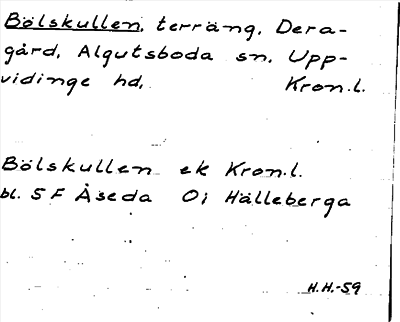 Bölskullen, terräng, Dera-
gård, Algutsboda sn, Upp-
vidinge hd, Kron.l.
Bölskullen ek Kron.l.
bl. 5 F Åseda Oi Hälleberga
H.H.-59